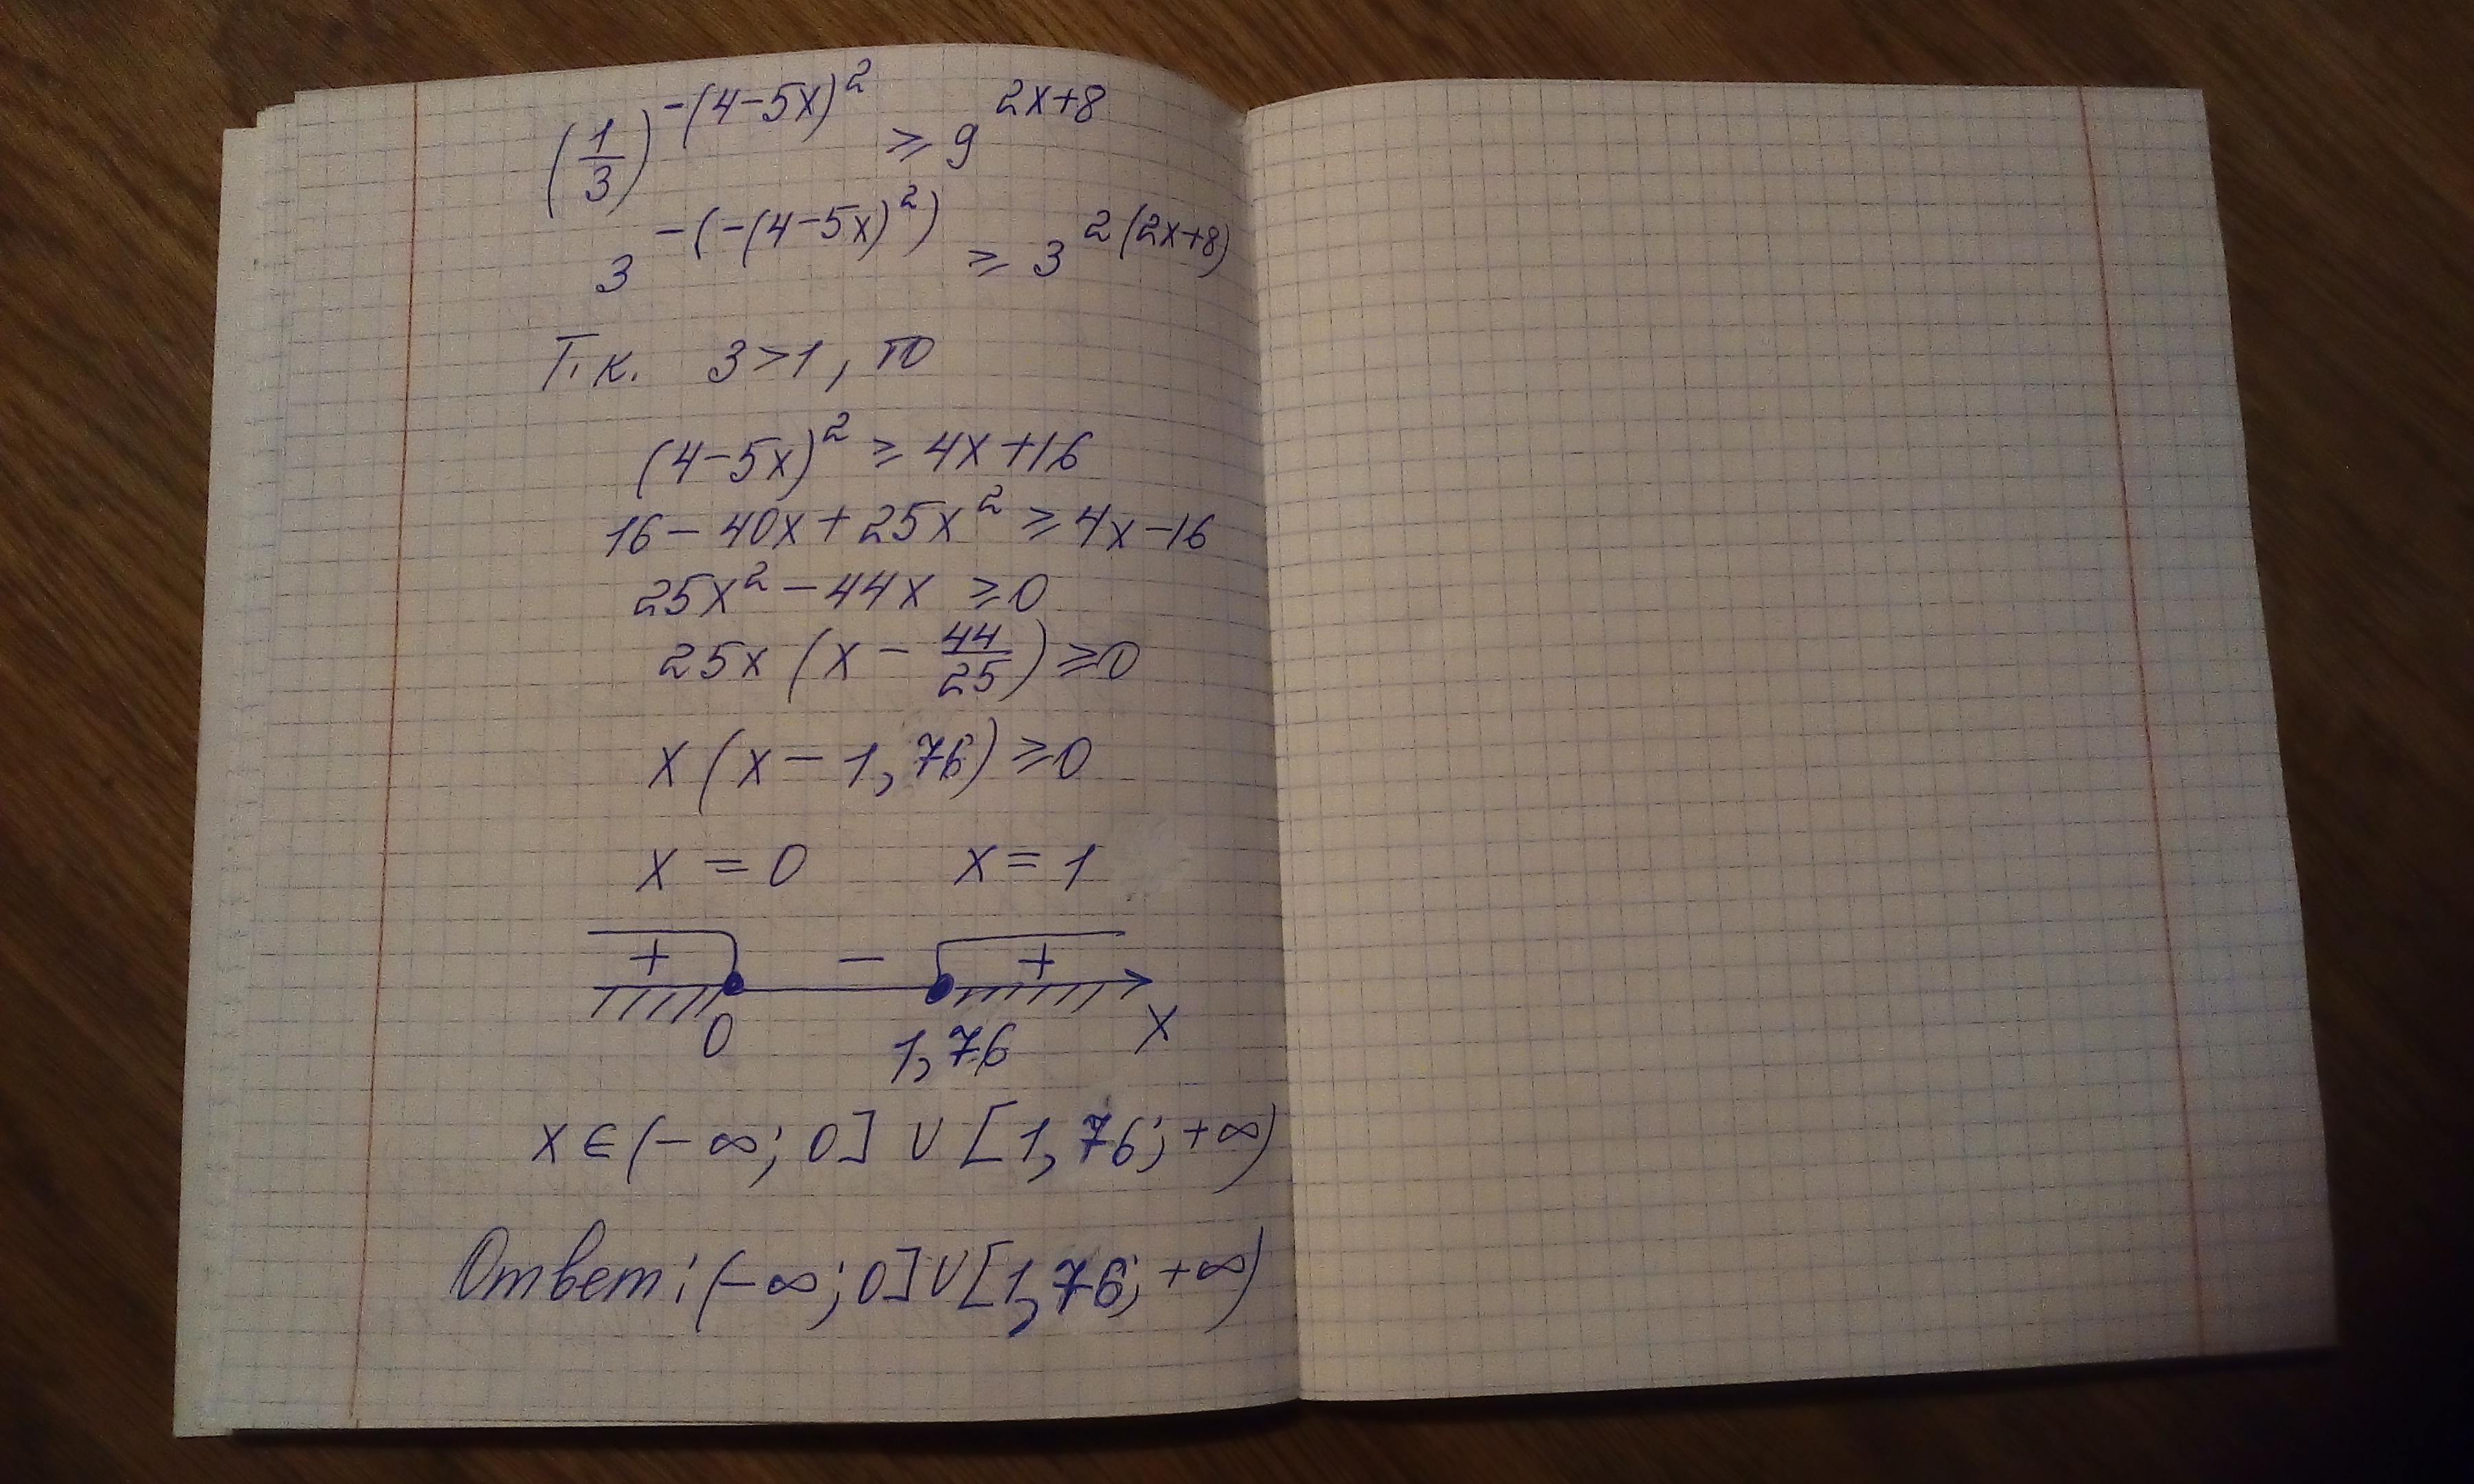 (1/3)^(-(4-5x)^2) ≥ 9^(2x+8)
3^(-(-(4-5x)^2)) ≥ 3^(2(2x+8))
Т.к. 3>1, то
(4-5x)^2 ≥ 4x+16
16-40x+25x^2 ≥ 4x-16
25x^2-44x ≥ 0
25x(x-44/25) ≥ 0
x(x-1,76) ≥ 0
x=0 x=1
+ - +
0 1,76 x
x∈(-∞; 0] ∪ [1,76; +∞)
Ответ: (-∞; 0] ∪ [1,76; +∞)